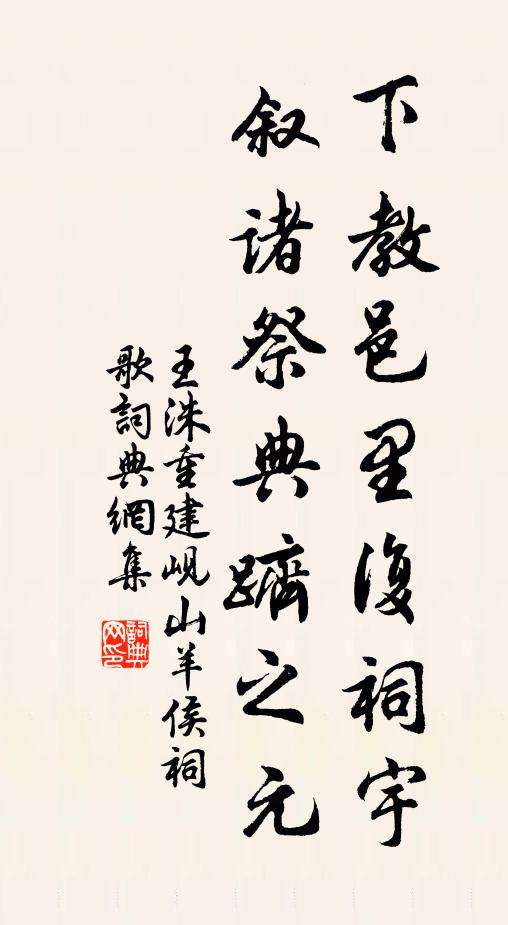 下教邑里復祠宇
叙诸祭典躋之元
王洙重建岘山羊侯祠
歌詞典網集
詞典网印